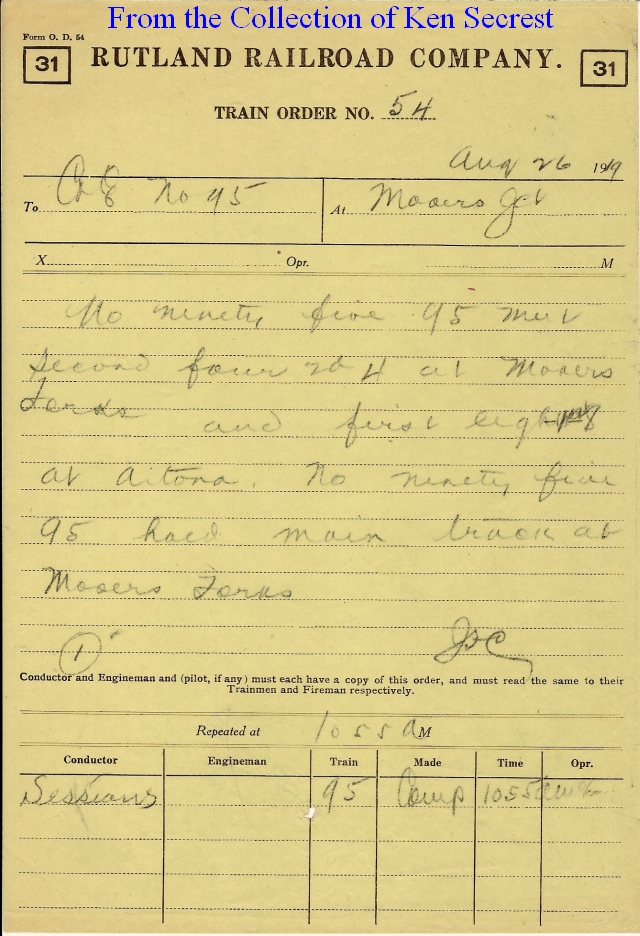 From the Collection of Ken Secrest
Form O. D. 54
31 RUTLAND RAILROAD COMPANY. 31
TRAIN ORDER NO. 54
Aug 26 1919
To C & E No 95 At Mooers Jct
X Opr. M
No ninety five 95 meet
second four 2d 4 at Mooers
Forks and first eight 1st 8
at Altona. No ninety five
95 hold main track at
Mooers Forks
1 JFC
Conductor and Engineman and (pilot, if any) must each have a copy of this order, and must read the same to their
Trainmen and Fireman respectively.
Repeated at 1055 AM
Conductor Engineman Train Made Time Opr.
Sessions 95 Comp 1055